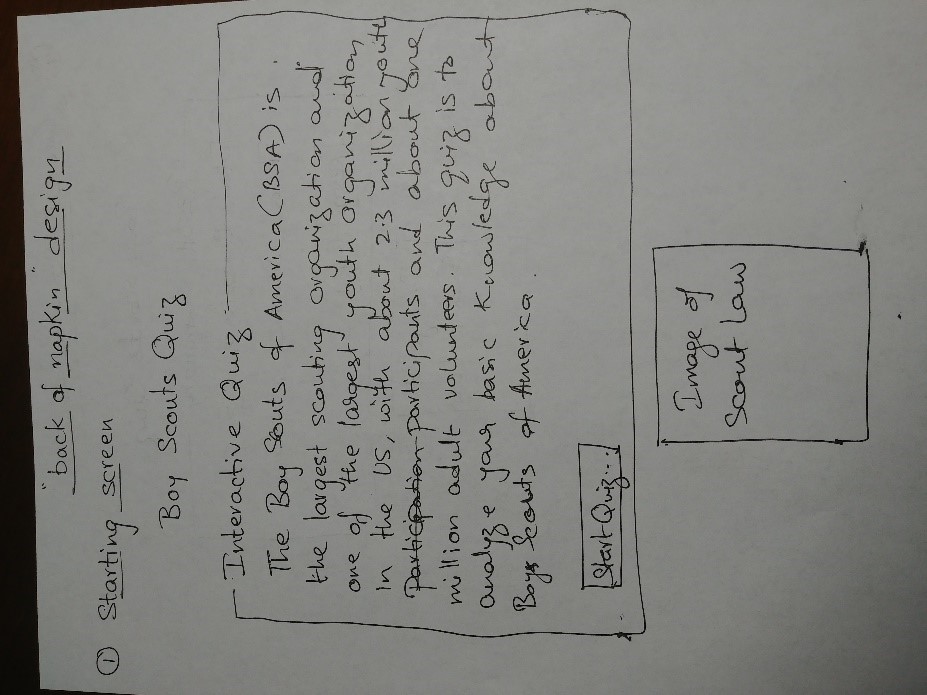 "back of napkin" design
① Starting screen
Boy Scouts Quiz
Interactive Quiz
The Boy Scouts of America (BSA) is
the largest scouting organization and
one of the largest youth organization
in the US, with about 2.3 million youth
Participation participants and about one
million adult volunteers. This quiz is to
analyze your basic knowledge about
Boys Scouts of America.
Start Quiz...
Image of
Scout Law